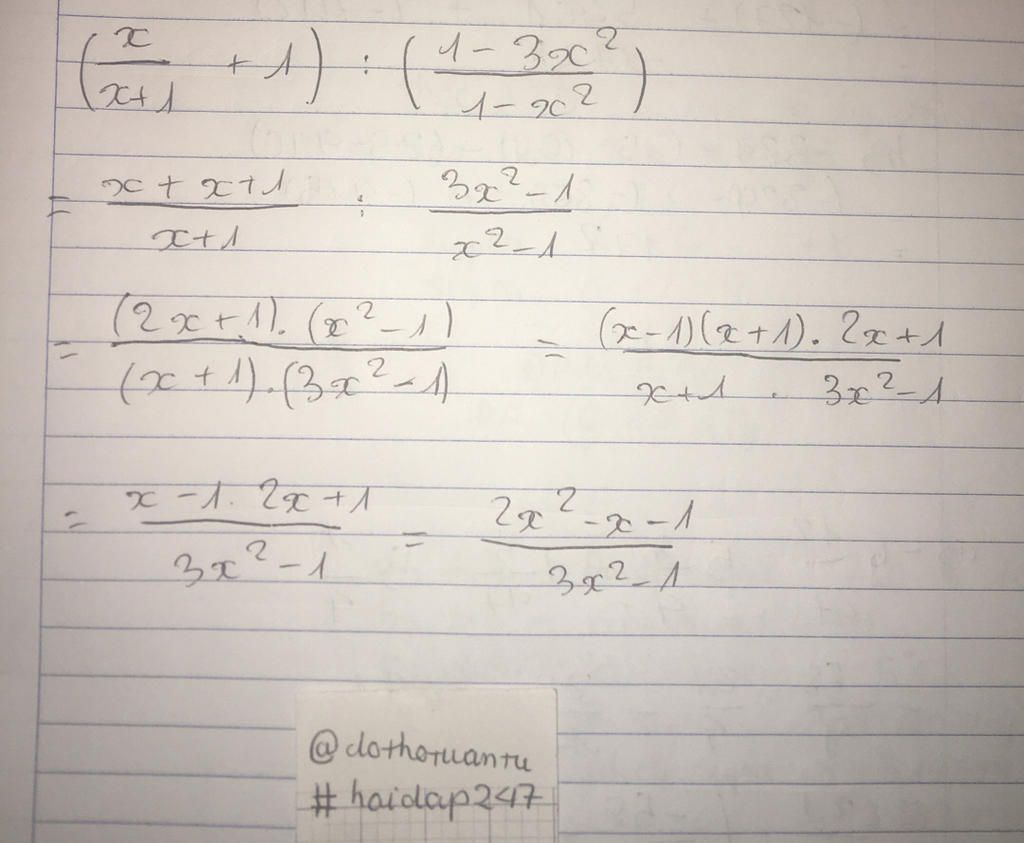 (x/(x+1) + 1) : ((1 - 3x²)/(1 - x²))
= (x + x + 1)/(x+1) : (3x² - 1)/(x² - 1)
= ((2x+1).(x² - 1))/((x+1).(3x² - 1)) = ((x-1)(x+1). 2x+1)/(x+1 . 3x² - 1)
= (x - 1. 2x+1)/(3x² - 1) = (2x² - x - 1)/(3x² - 1)
@clothotuantu
#hoidap247